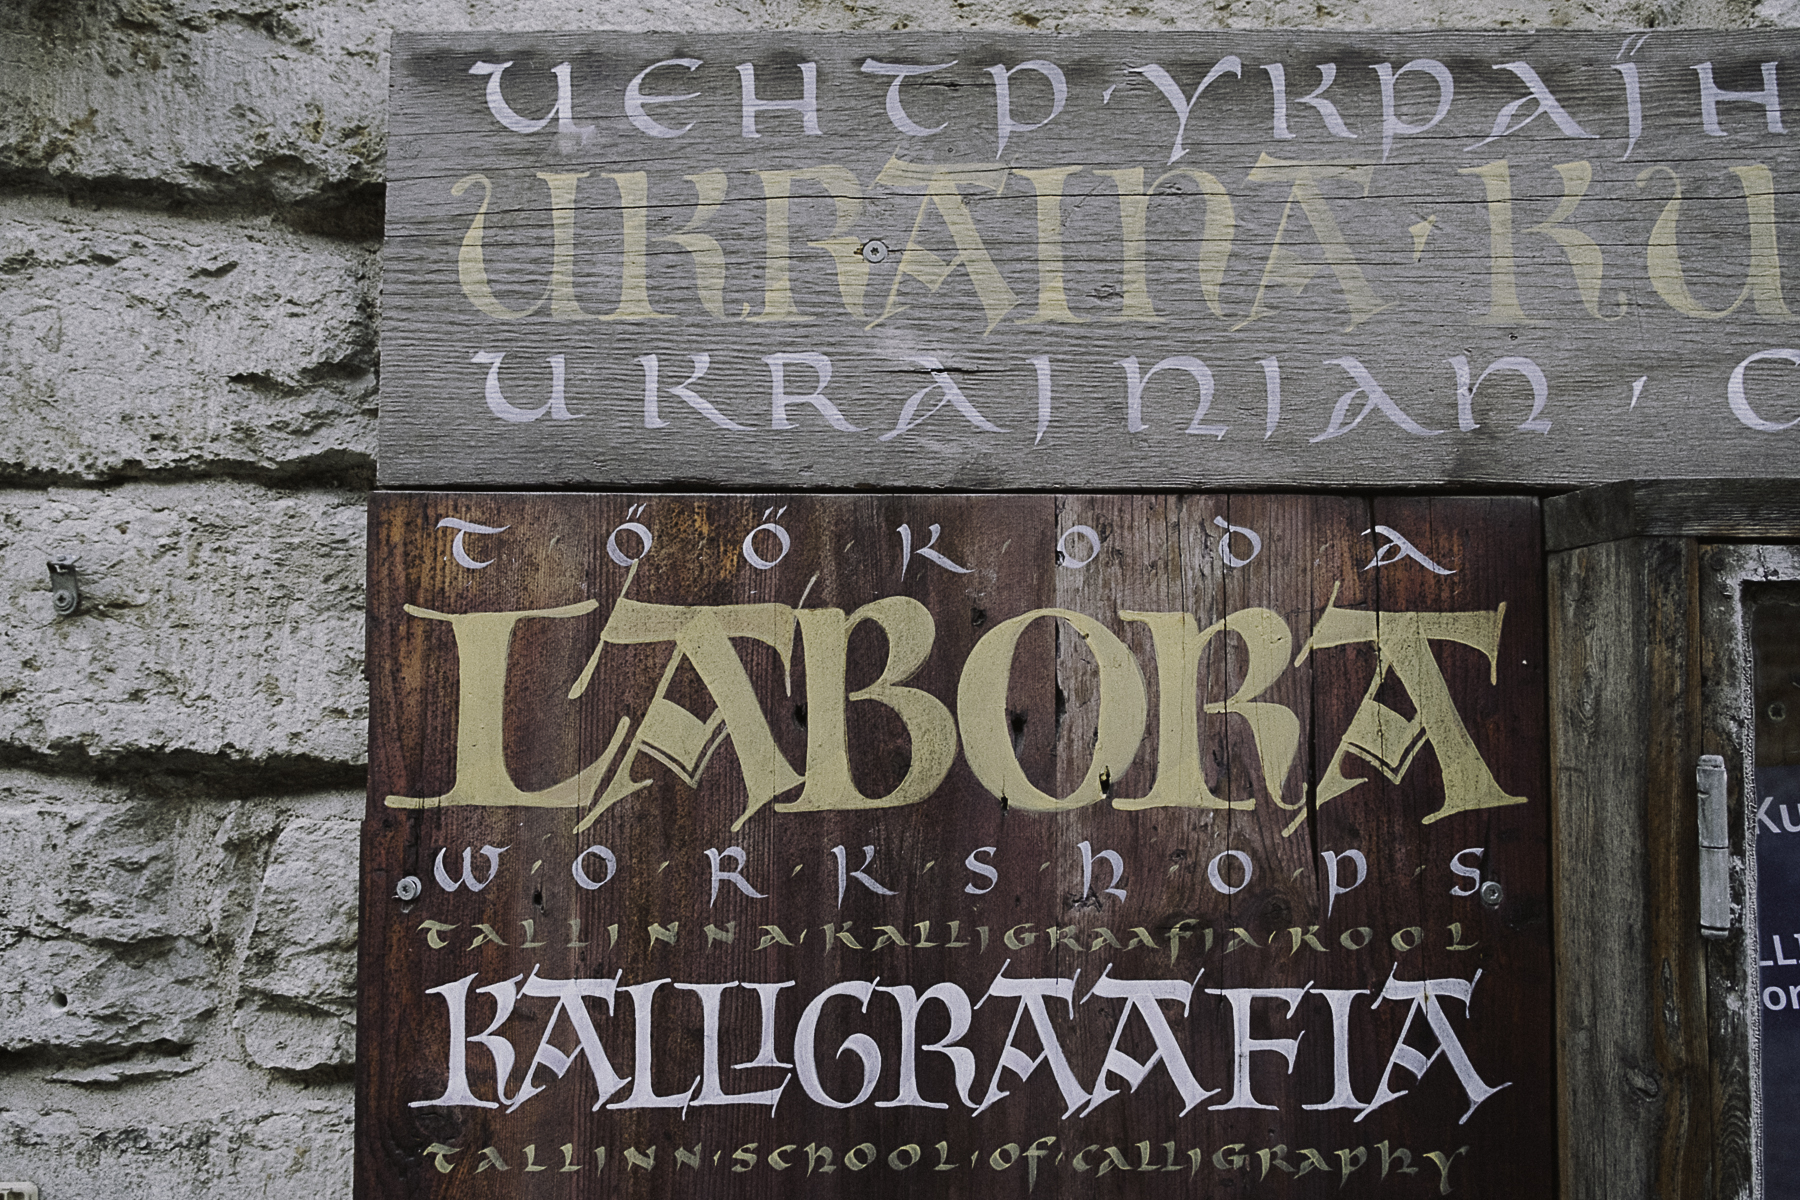 ЦЕНТР·УКРАЇН
UKRAINA·KU
UKRAINIAN·C
TÖÖKODA
LABORA
W·O·R·K·S·H·O·P·S
TALLINNA·KALLIGRAAFIA·KOOL
KALLIGRAAFIA
TALLINN·SCHOOL·OF·CALLIGRAPHY
Ku
LL
or